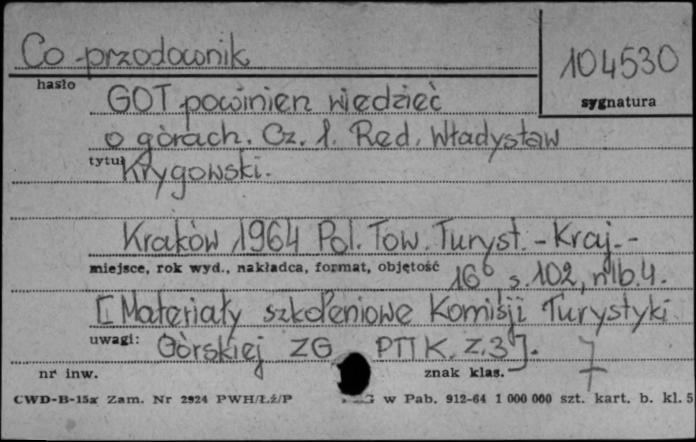 Co przodownik
104530
hasło
sygnatura
GOT powinien wiedzieć
o górach. Cz. 1. Red. Władysław
tytuł
Krygowski.
Kraków 1964 Pol. Tow. Turyst.-Kraj.-
miejsce, rok wyd., nakładca, format, objętość
16° s. 102, nlb. 4.
[Materiały szkoleniowe Komisji Turystyki
uwagi:
Górskiej ZG PTTK. Z. 3].
7
nr inw.
znak klas.
CWD-B-15a Zam. Nr 2924 PWH/Łż/P
w Pab. 912-64 1 000 000 szt. kart. b. kl. 5